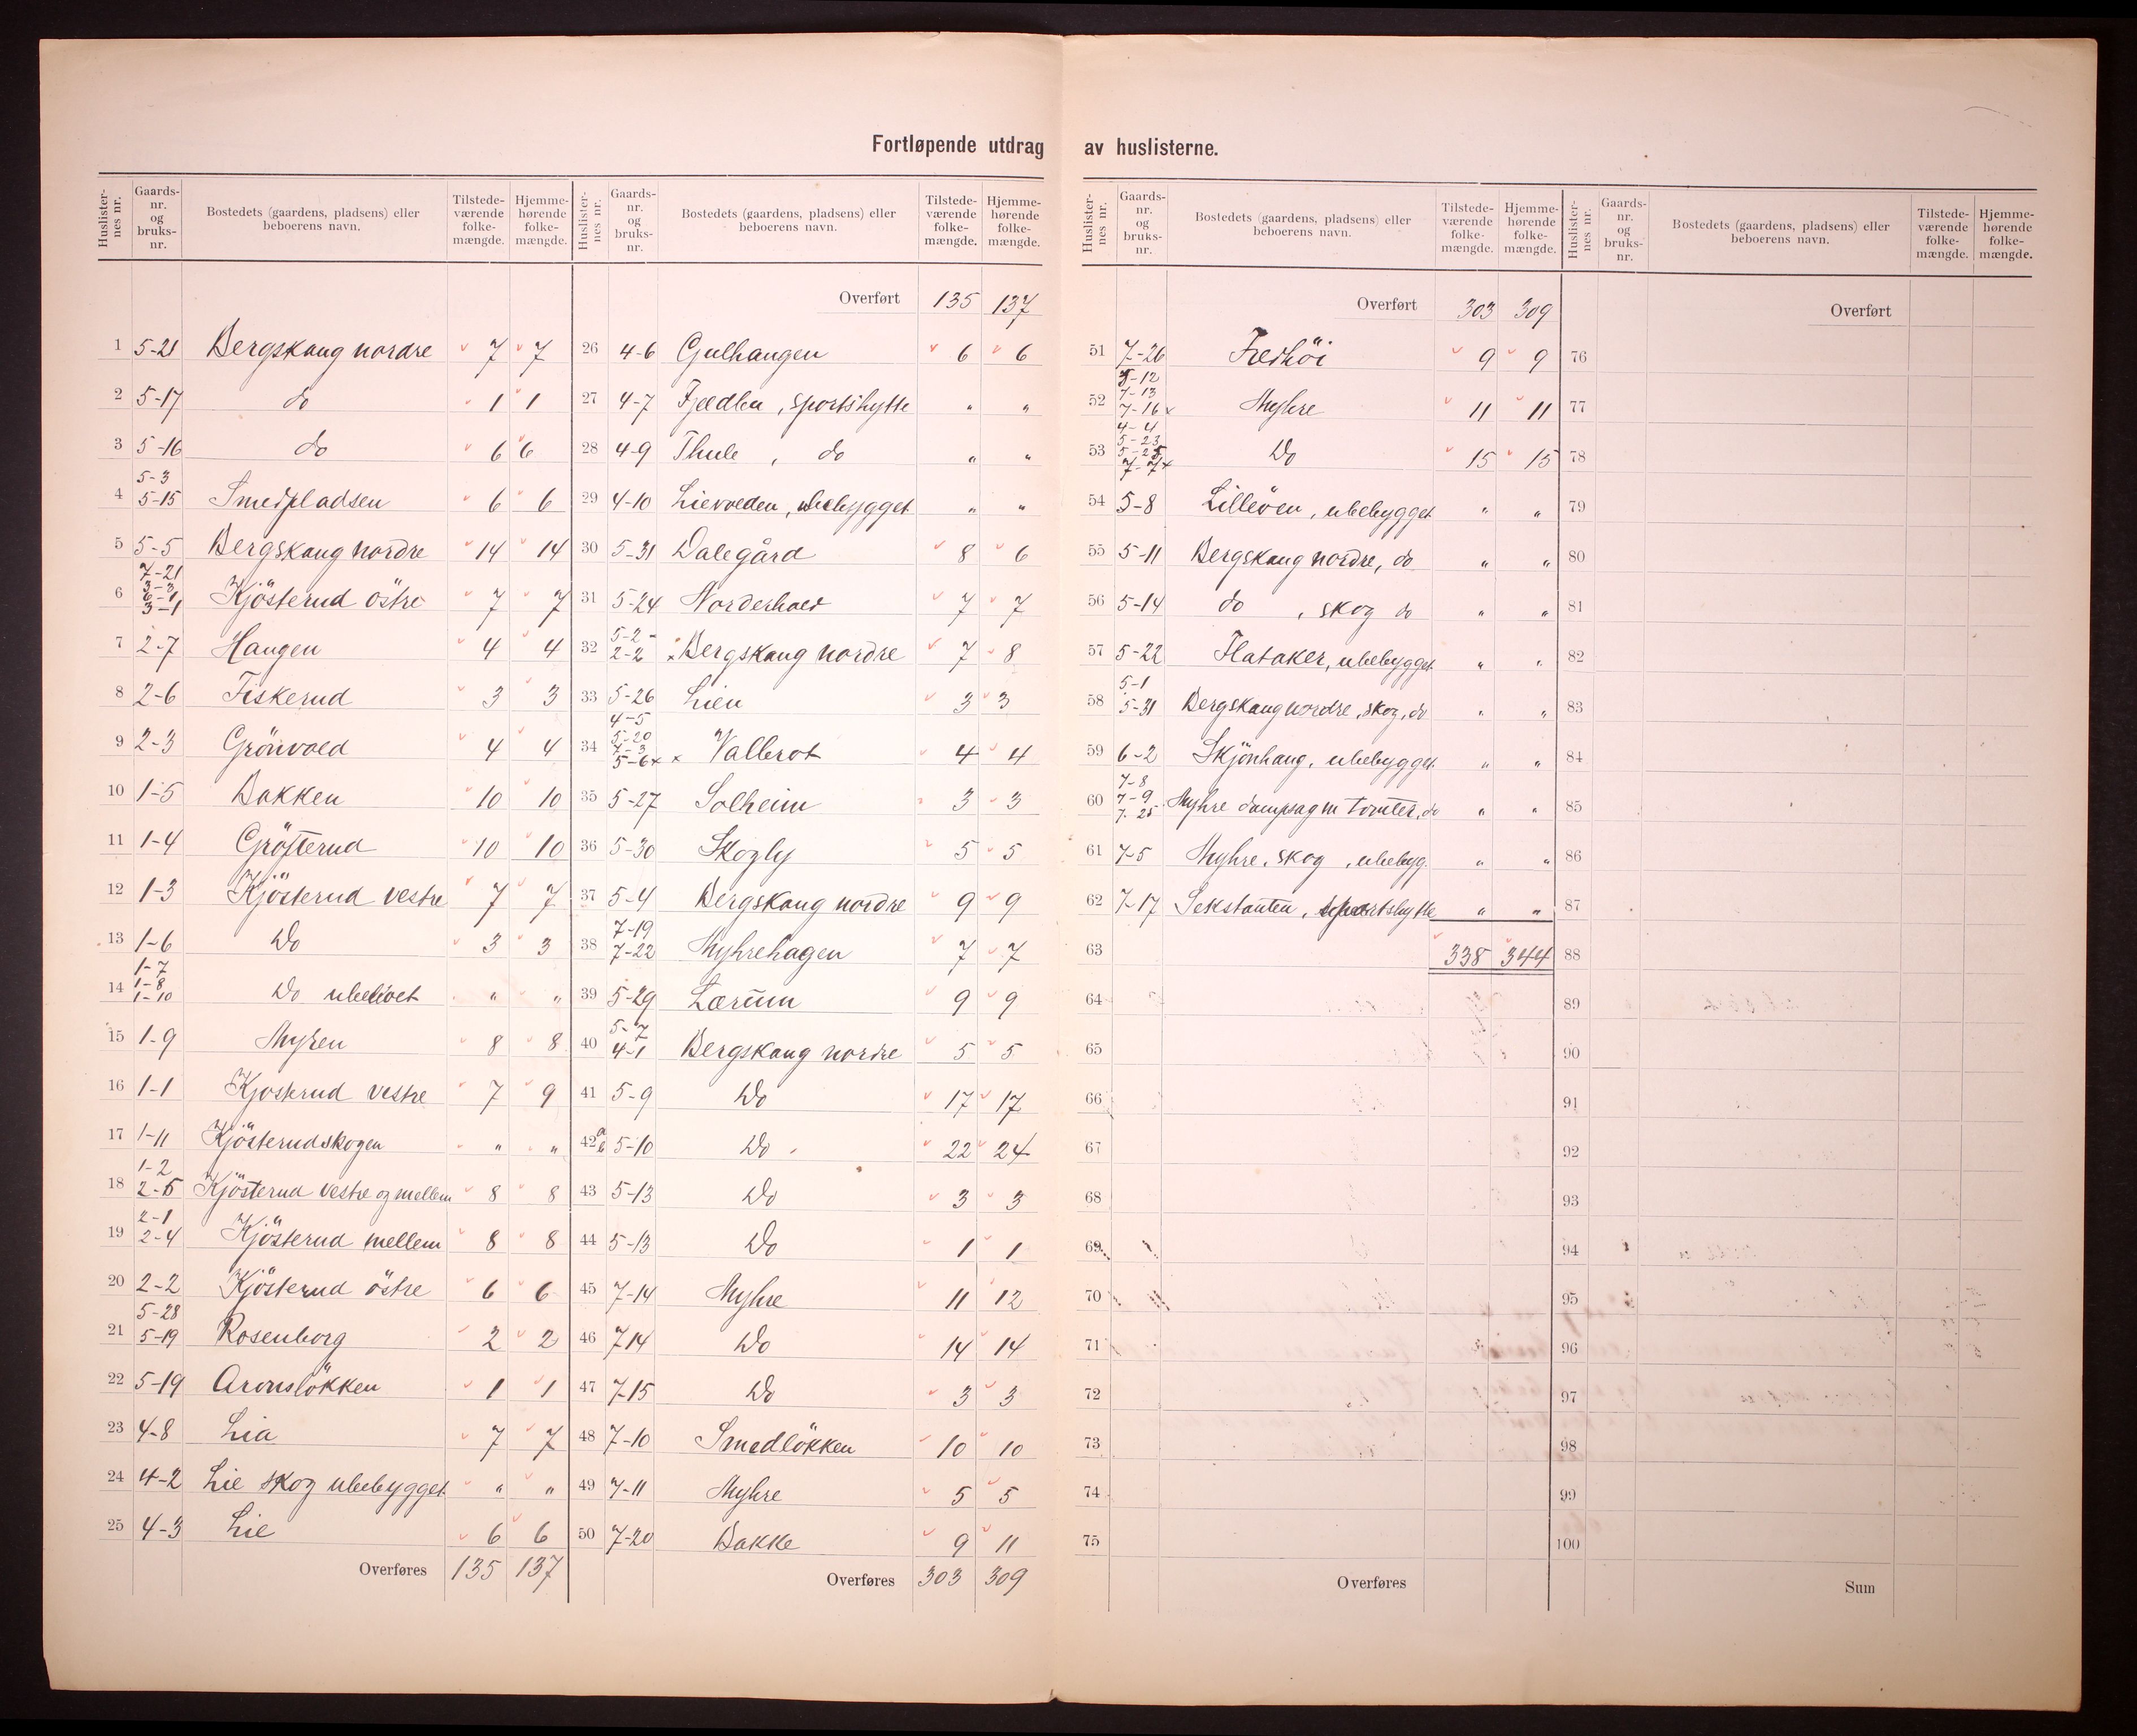 Fortløpende utdrag av huslisterne.
Huslisternes nr. Gaardsnr. og bruksnr. Bostedets (gaardens, pladsens) eller beboerens navn. Tilstedeværende folkemængde. Hjemmehørende folkemængde.
1 5-21 Bergskaug nordre 7 7
2 5-17 do 1 1
3 5-16 do 6 6
4 5-3 5-15 Smedpladsen 6 6
5 5-5 Bergskaug nordre 14 14
6 7-21 3-3 6-1 3-1 Kjösterud östre 7 7
7 2-7 Haugen 4 4
8 2-6 Fiskerud 3 3
9 2-3 Grönvold 4 4
10 1-5 Bakken 10 10
11 1-4 Grösterud 10 10
12 1-3 Kjösterud vestre 7 7
13 1-6 Do 3 3
14 1-7 1-8 1-10 Do ubeboet " "
15 1-9 Myren 8 8
16 1-1 Kjosterud vestre 7 9
17 1-11 Kjösterudskogen " "
18 1-2 2-5 Kjösterud vestre og mellem 8 8
19 2-1 2-4 Kjösterud mellem 8 8
20 2-2 Kjösterud östre 6 6
21 5-28 5-19 Rosenborg 2 2
22 5-19 Aronslökken 1 1
23 4-8 Lia 7 7
24 4-2 Lie skog ubebygget " "
25 4-3 Lie 6 6
Overføres 135 137
Huslisternes nr. Gaardsnr. og bruksnr. Bostedets (gaardens, pladsens) eller beboerens navn. Tilstedeværende folkemængde. Hjemmehørende folkemængde.
Overført 135 137
26 4-6 Gulhaugen 6 6
27 4-7 Fjeldlen, sportshytte " "
28 4-9 Thule, do " "
29 4-10 Lievolden, ubebygget " "
30 5-31 Dalegård 8 6
31 5-24 Norderhov 7 7
32 5-2 2-2 x Bergskaug nordre 7 8
33 5-26 Lien 3 3
34 4-5 5-20 7-3 5-6 x x Vallerot 4 4
35 5-27 Solheim 3 3
36 5-30 Skogly 5 5
37 5-4 Bergskaug nordre 9 9
38 7-19 7-22 Myhrehagen 7 7
39 5-29 Lærum 9 9
40 5-7 4-1 Bergskaug nordre 5 5
41 5-9 Do 17 17
42 a b 5-10 Do 22 24
43 5-13 Do 3 3
44 5-13 Do 1 1
45 7-14 Myhre 11 12
46 7 14 Do 14 14
47 7-15 Do 3 3
48 7-10 Smedlökken 10 10
49 7-11 Myhre 5 5
50 7-20 Bakke 9 11
Overføres 303 309
Huslisternes nr. Gaardsnr. og bruksnr. Bostedets (gaardens, pladsens) eller beboerens navn. Tilstedeværende folkemængde. Hjemmehørende folkemængde.
Overført 303 309
51 7-26 Fredhöi 9 9
52 7-13 7-16 x Myhre 11 11
53 4-4 5-23 5-25 7-7 x Do 15 15
54 5-8 Lilleöen, ubebygget " "
55 5-11 Bergskaug nordre, do " "
56 5-14 do, skog do " "
57 5-22 Flataker, ubebygget " "
58 5-1 5-31 Bergskaug nordre, skog, do " "
59 6-2 Skjönhaug, ubebygget " "
60 7-8 7-9 7-25 Myhre dampsag m tomter, do " "
61 7-5 Myhre, skog, ubebyg. " "
62 7-17 Sekstanten, sportshytte " "
63 338 344
64
65
66
67
68
69
70
71
72
73
74
75
Overføres
Huslisternes nr. Gaardsnr. og bruksnr. Bostedets (gaardens, pladsens) eller beboerens navn. Tilstedeværende folkemængde. Hjemmehørende folkemængde.
Overført
76
77
78
79
80
81
82
83
84
85
86
87
88
89
90
91
92
93
94
95
96
97
98
99
100
Sum